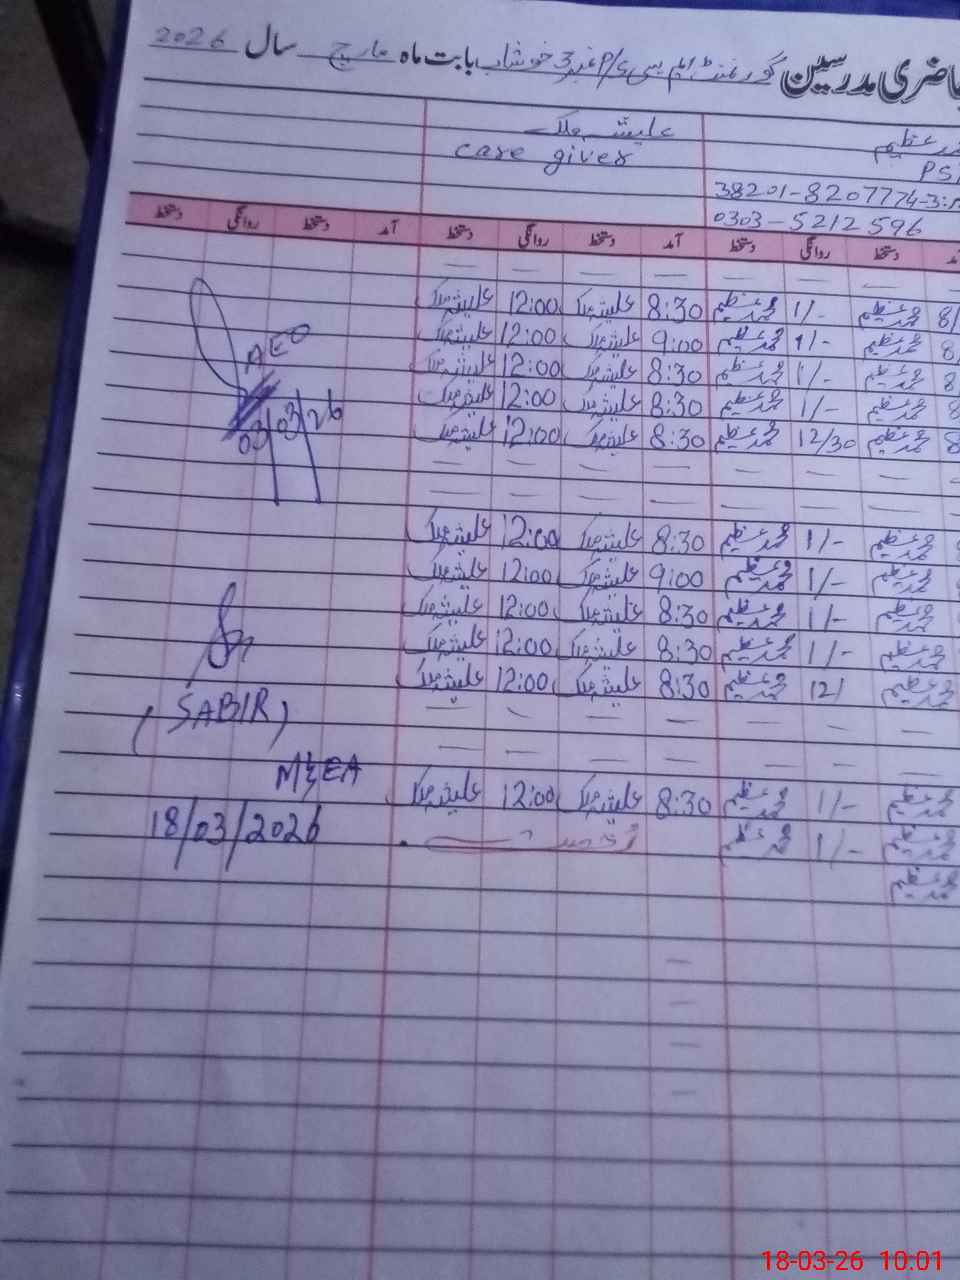 حاضری مدرسین گورنمنٹ ایم سی P/S نمبر 3 خوشاب بابت ماہ مارچ سال 2026
محمد عظیم علیشہ ملک
PST care giver
38201-8207774-3
0303-5212596
آمد دستخط روانگی دستخط آمد دستخط روانگی دستخط آمد دستخط روانگی دستخط
محمد عظیم 1/- محمد عظیم 8:30 علیشہ ملک 12:00 علیشہ ملک
محمد عظیم 1/- محمد عظیم 9:00 علیشہ ملک 12:00 علیشہ ملک
AEO
محمد عظیم 1/- محمد عظیم 8:30 علیشہ ملک 12:00 علیشہ ملک
محمد عظیم 1/- محمد عظیم 8:30 علیشہ ملک 12:00 علیشہ ملک
03/03/26
محمد عظیم 12/30 محمد عظیم 8:30 علیشہ ملک 12:00 علیشہ ملک
محمد عظیم 1/- محمد عظیم 8:30 علیشہ ملک 12:00 علیشہ ملک
محمد عظیم 1/- محمد عظیم 9:00 علیشہ ملک 12:00 علیشہ ملک
محمد عظیم 1/- محمد عظیم 8:30 علیشہ ملک 12:00 علیشہ ملک
محمد عظیم 1/- محمد عظیم 8:30 علیشہ ملک 12:00 علیشہ ملک
محمد عظیم 12/ محمد عظیم 8:30 علیشہ ملک 12:00 علیشہ ملک
(SABIR)
M&EA
محمد عظیم 1/- محمد عظیم 8:30 علیشہ ملک 12:00 علیشہ ملک
18/03/2026
محمد عظیم 1/- محمد عظیم رخصت
محمد عظیم
18-03-26 10:01